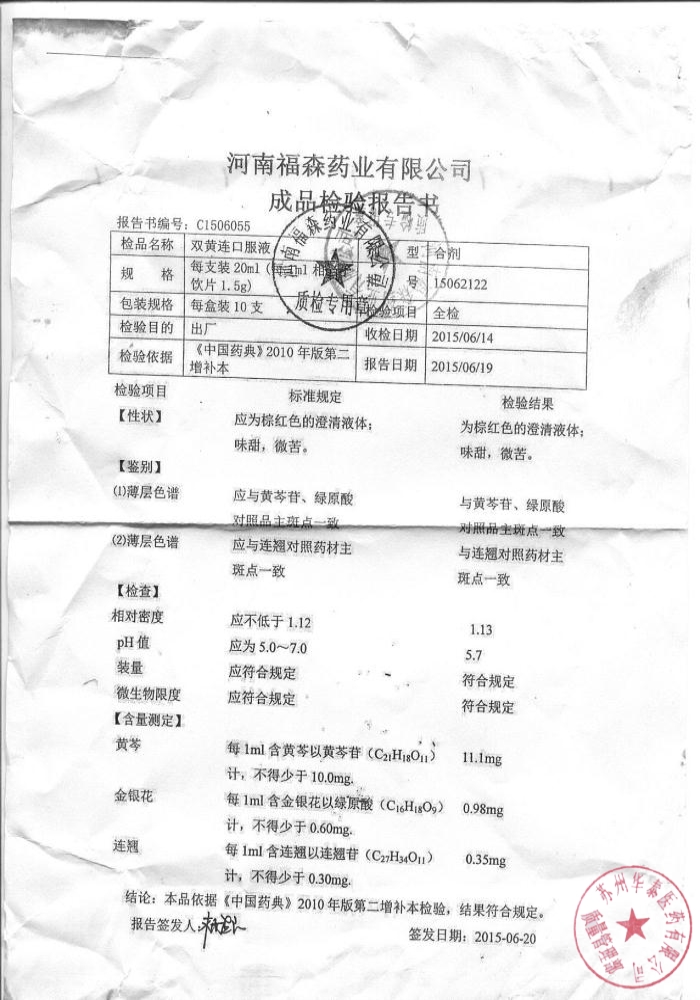 河南福森药业有限公司
成品检验报告书
报告书编号：C1506055
检品名称 双黄连口服液 型 合剂
规 格 每支装 20ml (每 1ml 相
饮片 1.5g) 号 15062122
包装规格 每盒装 10 支 检验项目 全检
检验目的 出厂 收检日期 2015/06/14
检验依据 《中国药典》2010 年版第二
增补本 报告日期 2015/06/19
河南福森药业有限公司
质检专用章
检验项目 标准规定 检验结果
【性状】 应为棕红色的澄清液体； 为棕红色的澄清液体；
味甜，微苦。 味甜，微苦。
【鉴别】
⑴薄层色谱 应与黄芩苷、绿原酸 与黄芩苷、绿原酸
对照品主斑点一致 对照品主斑点一致
⑵薄层色谱 应与连翘对照药材主 与连翘对照药材主
斑点一致 斑点一致
【检查】
相对密度 应不低于 1.12 1.13
pH 值 应为 5.0～7.0 5.7
装量 应符合规定 符合规定
微生物限度 应符合规定 符合规定
【含量测定】
黄芩 每 1ml 含黄芩以黄芩苷（C21H18O11） 11.1mg
计，不得少于 10.0mg.
金银花 每 1ml 含金银花以绿原酸（C16H18O9） 0.98mg
计，不得少于 0.60mg.
连翘 每 1ml 含连翘以连翘苷（C27H34O11） 0.35mg
计，不得少于 0.30mg.
结论：本品依据《中国药典》2010 年版第二增补本检验，结果符合规定。
报告签发人：
签发日期：2015-06-20
苏州华泰医药有限公司
质量管理部